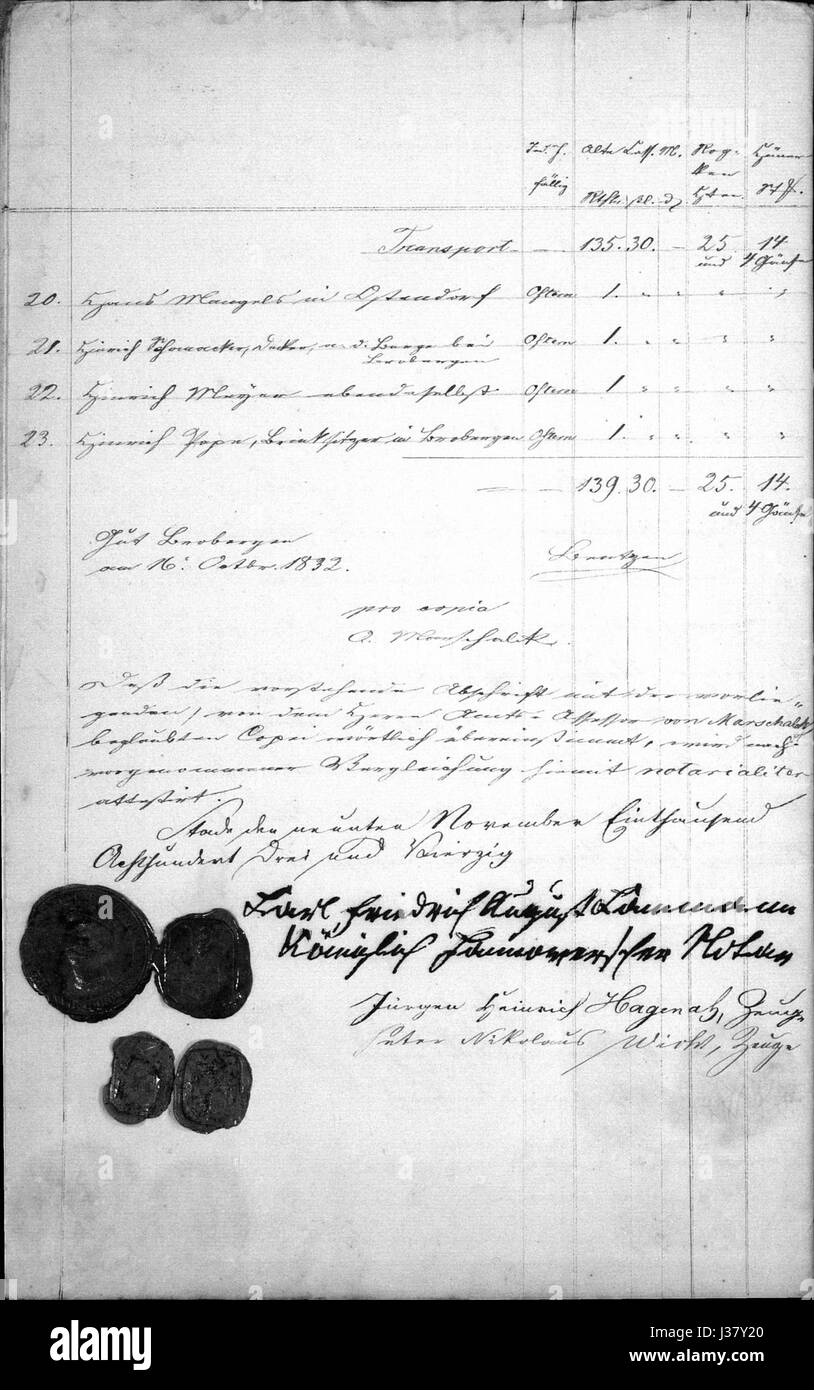 fällig Alte Cass. M. Rog- Hüner
ken
Rthlr. ßl. d. Hten. St.
Transport — 135. 30. — 25 14
und 4 Gänse
20. Hans Mangels in Ostendorf Ostern 1. " " " "
21. Hinrich Schomacker, Decker, a. d. Berge bei Ostern 1. " " " "
Brobergen
22. Hinrich Meyer ebendaselbst Ostern 1 " " " "
23. Hinrich Pope, Brinksitzer in Brobergen Ostern 1. " " " "
— 139. 30. — 25. 14.
und 4 Gänse
Gut Brobergen
am 16. Octbr. 1832.
pro copia
A. Marschalck.
Daß die vorstehende Abschrift mit der vorlie=
genden, von dem Herrn Amts=Assessor von Marschalck
beglaubten Copei wörtlich übereinstimmt, wird nach
vorgenommener Vergleichung hiemit notarialiter
attestirt.
Stade den neunten November Einthausend
Achthundert Drei und Vierzig
Carl Friedrich August
Königlich Hannoverscher Notar
Jürgen Heinrich Hagenah, Zeuge
Peter Nikolaus Zeuge
alamy
a
alamy stock photo
J37Y20
www.alamy.com